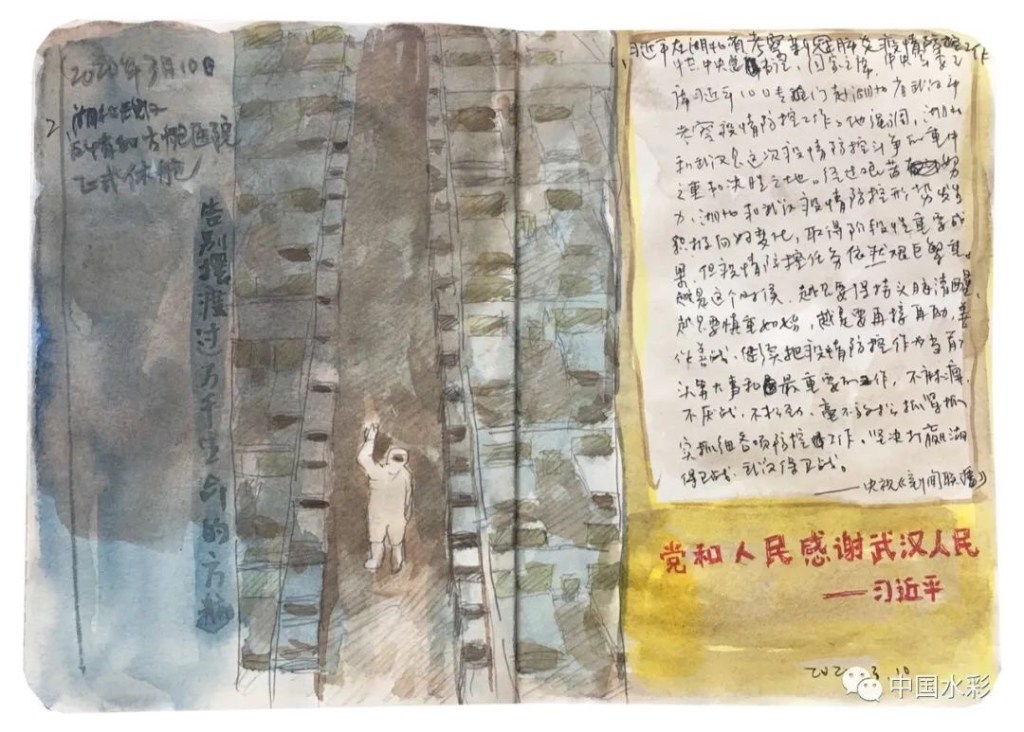 2020年3月10日
2、湖北武汉
所有的方舱医院
正式休舱
告别摆渡过万千生命的方舱
1、习近平在湖北省考察新冠肺炎疫情防控工作
中共中央总书记、国家主席、中央军委主
席习近平10日专门赴湖北省武汉市
考察疫情防控工作。他强调,湖北
和武汉是这次疫情防控斗争的重中
之重和决胜之地。经过艰苦努
力,湖北和武汉疫情防控形势发生
积极向好变化,取得阶段性重要成
果,但疫情防控任务依然艰巨繁重。
越是这个时候,越是要保持头脑清醒,
越是要慎重如始,越是要再接再励、善
作善战,继续把疫情防控作为当前
头等大事和最重要的工作,不麻痹、
不厌战、不松劲,毫不放松抓紧抓
实抓细各项防控工作,坚决打赢湖
保卫战、武汉保卫战。
——央视《新闻联播》
党和人民感谢武汉人民
——习近平
2020.3.10
中国水彩